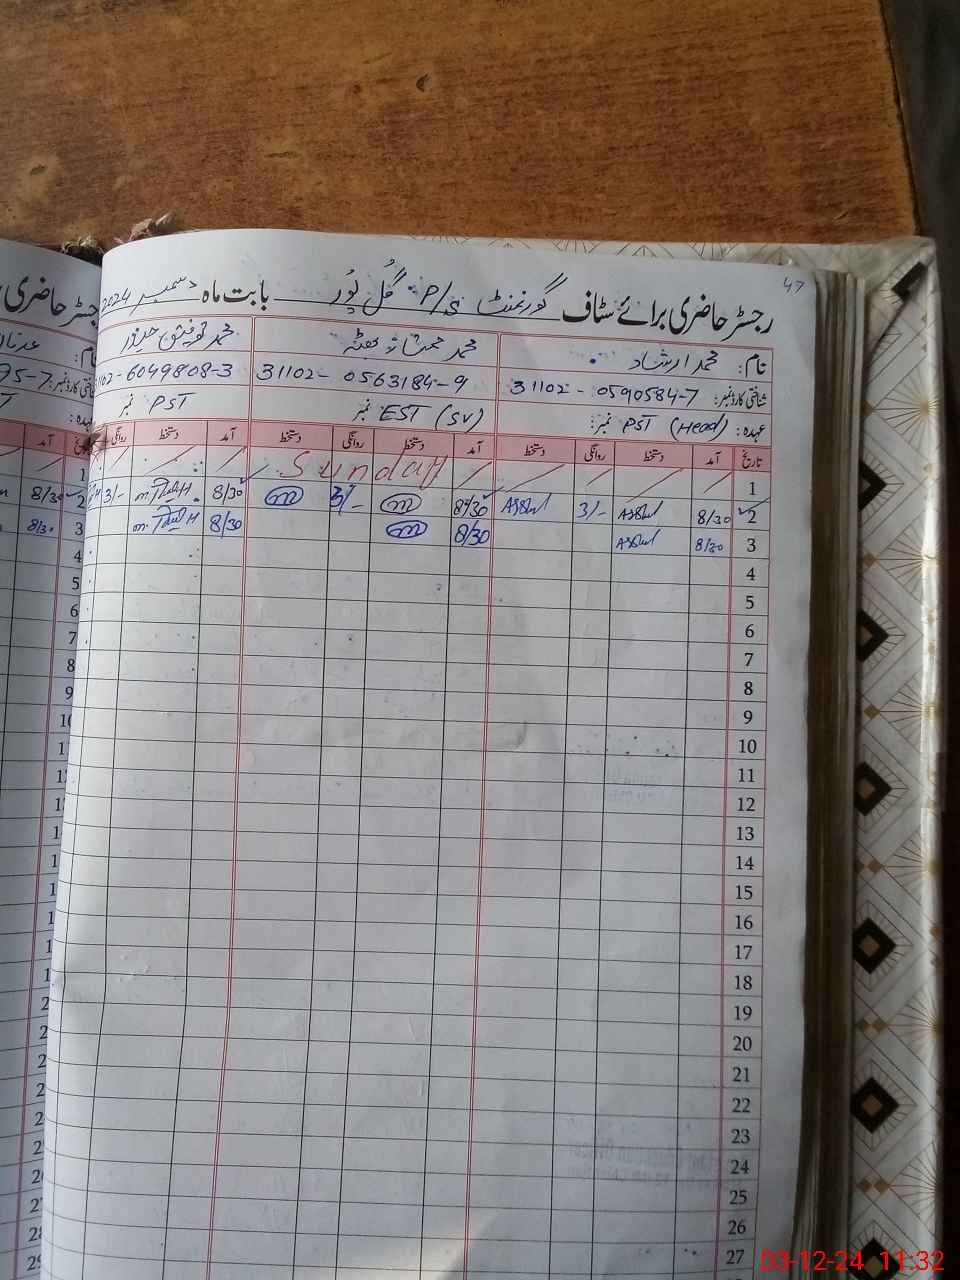 47
رجسٹر حاضری برائے سٹاف گورنمنٹ P/S گُل پُور بابت ماہ دسمبر 2024
نام: محمد ارشاد
شناختی کارڈ نمبر: 31102-0590584-7
عہدہ: PST (Head) نمبر:
محمد ممتاز بھٹہ
31102-0563184-9
EST (SV) نمبر
102-6049808-3
PST نمبر
تاریخ آمد دستخط روانگی دستخط آمد دستخط روانگی دستخط آمد دستخط روانگی
1 Sunday
2 8/30 3/- 8/30 3/- 8/30 3/-
3 8/30 8/30 8/30
4
5
6
7
8
9
10
11
12
13
14
15
16
17
18
19
20
21
22
23
24
25
26
27
رجسٹر حاضری
نام:
95-7
شناختی کارڈ نمبر:
عہدہ:
آمد
1
8/30 2
8/30 3
4
5
6
7
8
9
28
03-12-24 11:32